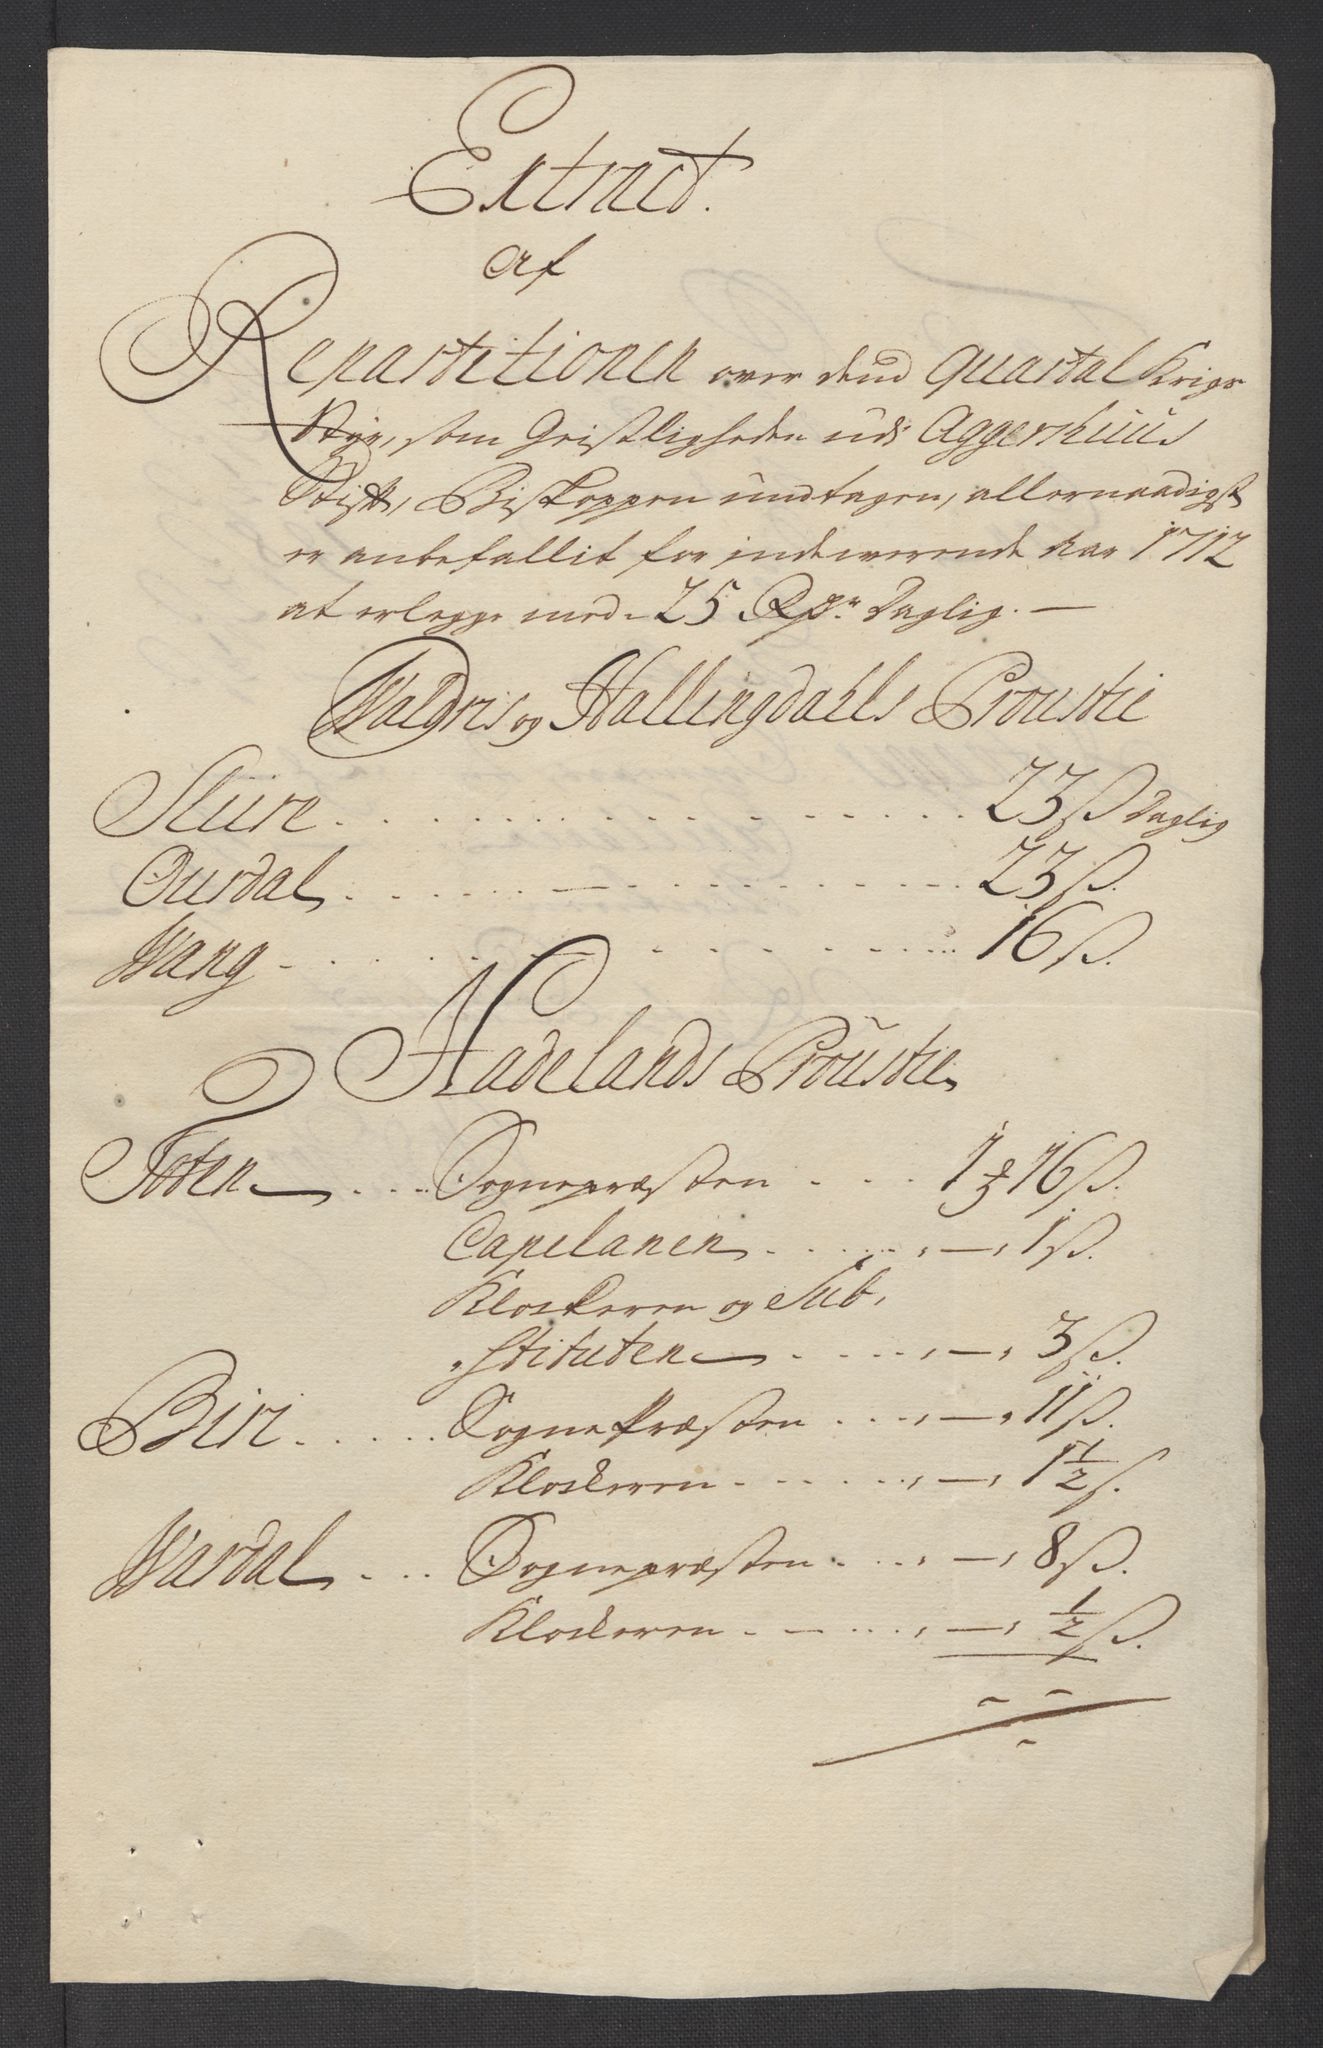 Extract.
Af
Repartitionen over dend Quartal Krigs
Styr, som Geistligheden udi Aggershuus
Stift, Biskoppen undtagen, allernaadigst
er anbefallit for indeværende Aar 1712
at erlegge med 25 Rdr. Daglig. —
Waldris og Hallingdahls Proustie
Sluire . . . . . 23 ß Daglig
Ourdal . . . . . 23 ß.
Wang . . . . . 16 ß.
Hadelands Proustie
Toten . . . Sognepræsten . . . 1 16 ß.
Capelanen . . . — 1 ß.
Klockeren og Sub-
stituten . . . — 3 ß.
Birj . . . Sognepræsten . . . — 11 ß.
Klockeren . . . — 1½ ß.
Wardal . . . Sognepræsten . . . — 8 ß.
Klockeren . . . — ½ ß.